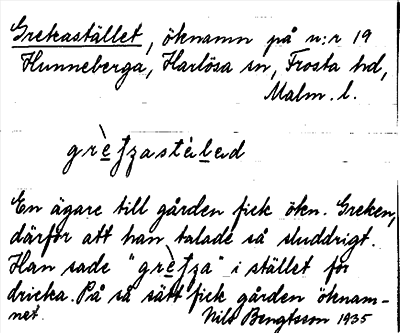 Grekastället, öknamn på n:r 19
Hunneberga, Harlösa sn, Frosta hd,
Malm. l.
En ägare till gården fick ökn. Greken,
därför att han talade så sluddrigt.
Han sade "grèʃza" i stället för
dricka. På så sätt fick gården öknam-
net. Nils Bengtsson 1935